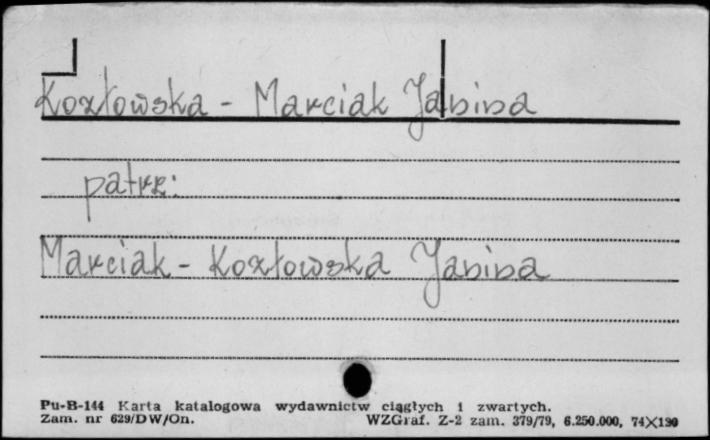 Kozłowska - Marciak Janina
patrz:
Marciak - Kozłowska Janina
Pu-B-144 Karta katalogowa wydawnictw ciągłych i zwartych.
Zam. nr 629/DW/On. WZGraf. Z-2 zam. 379/79, 6.250.000, 74X130